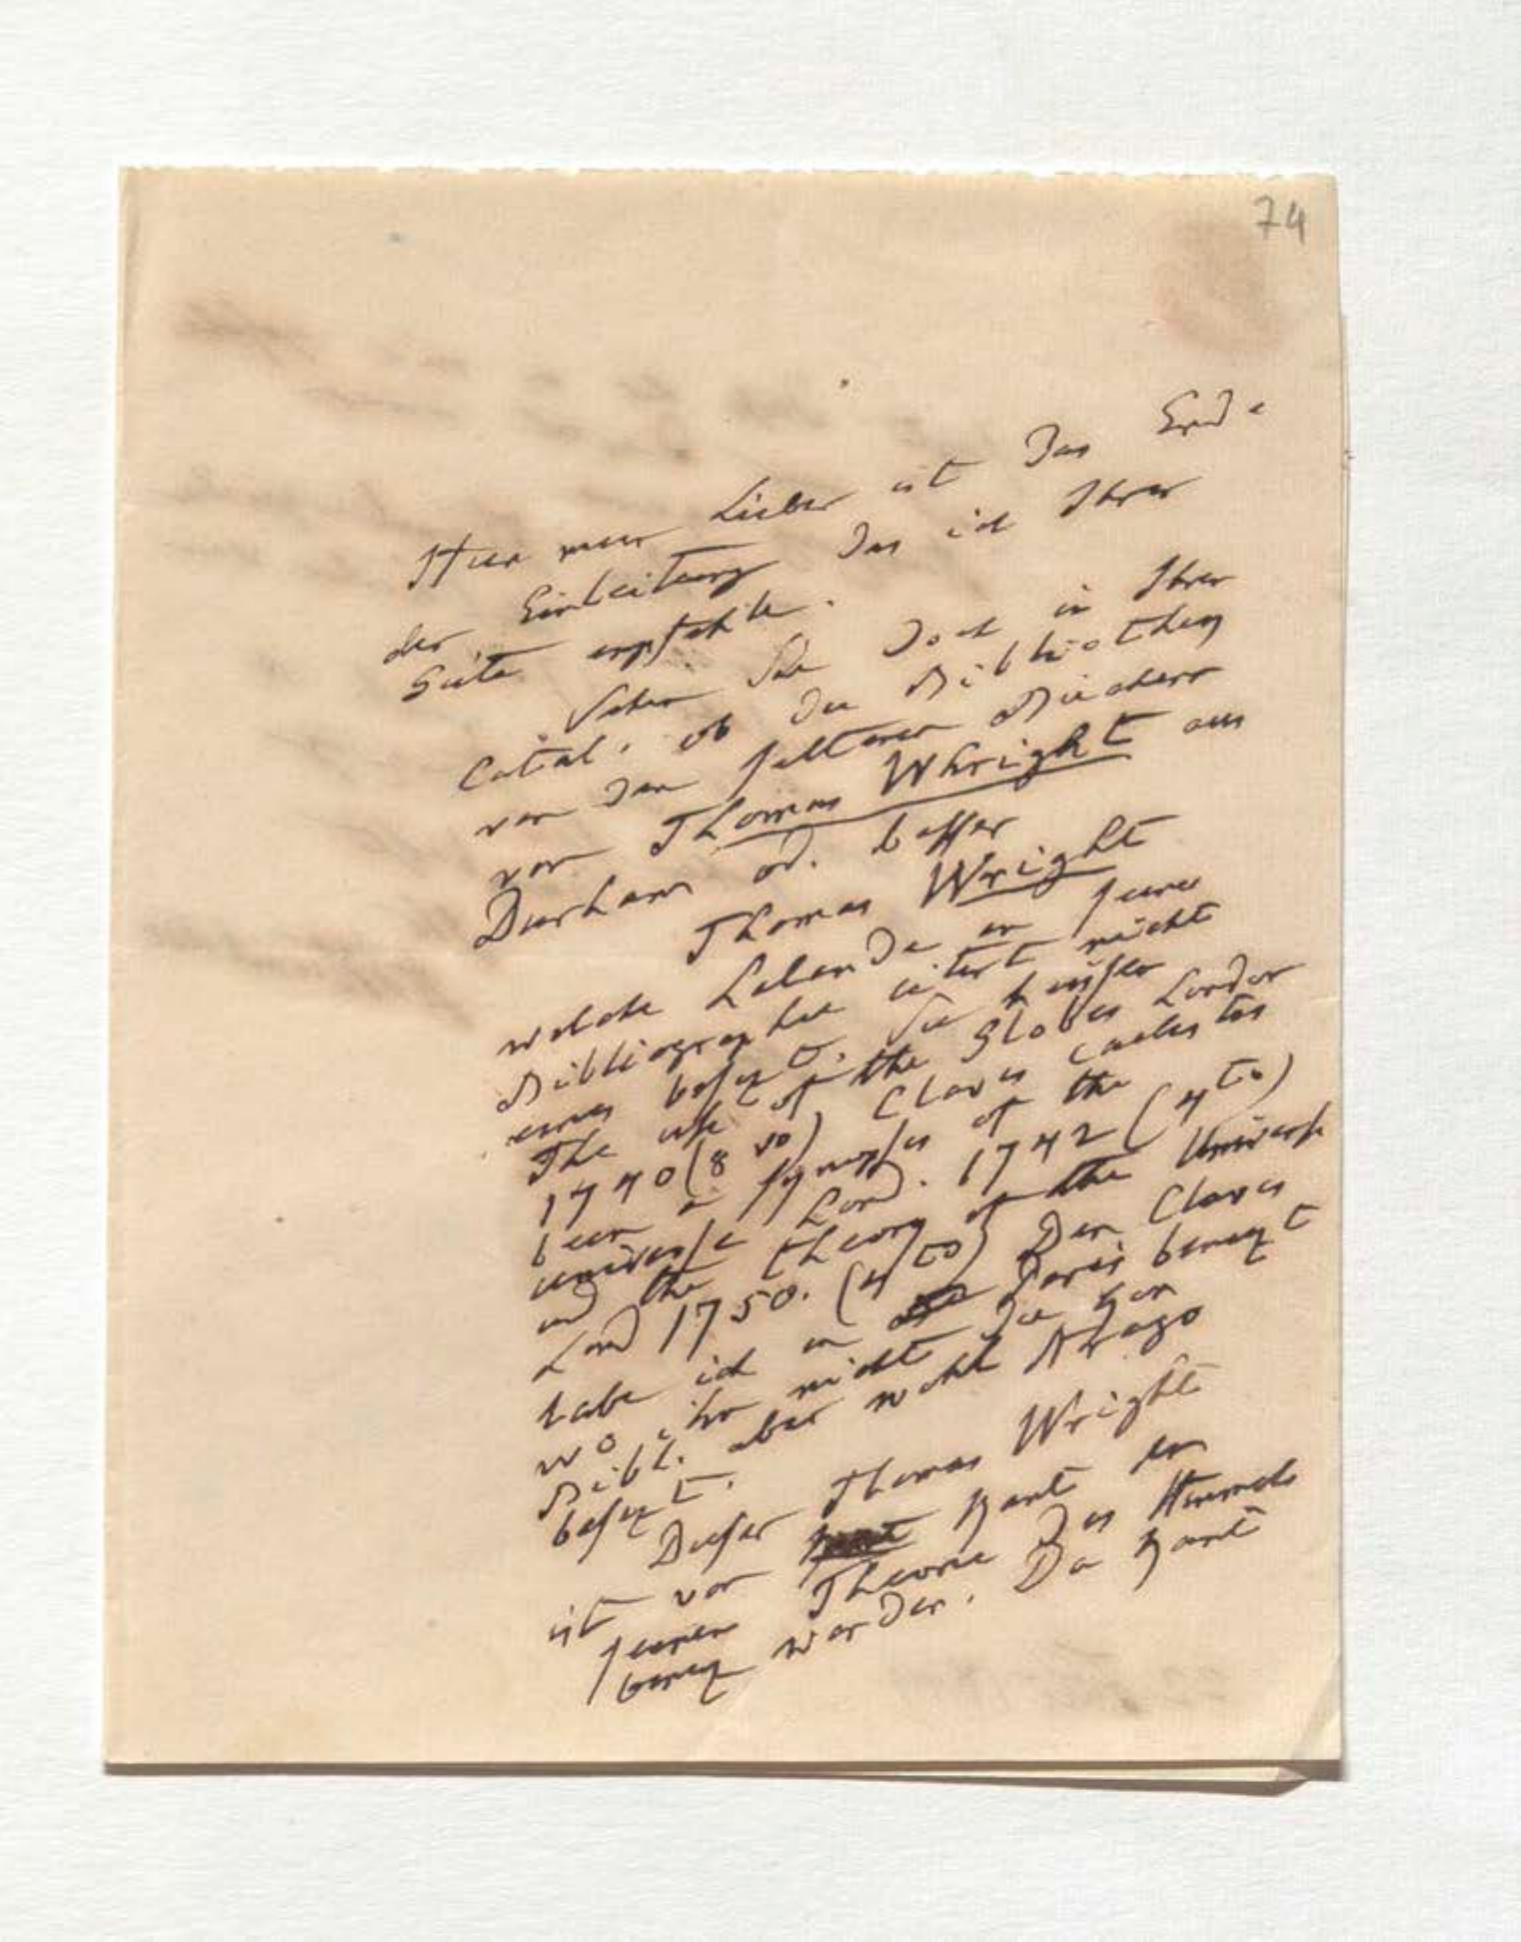 74
Hier mein Lieber ist das Ende
der Einleitung das ich Ihrer
Güte empfehle.
Sehen Sie doch in Ihrem
Catal. ob die Bibliothek
von den seltenen Büchern
von Thomas Whright aus
Durham od. besser
Thomas Wright
welche Lalande in seiner
Bibliographie citirt nicht
eines besizt. Sie heißen
The use of the Globes London
1740 (8vo) Clavis caelestis
being a synopsis of the
universe Lond. 1742 (4to)
und the theory of the Universe
Lond 1750. (4to) Den Clavis
habe ich in Paris benuzt
wo ihn nicht die Kön
Bibl. aber wohl Arago
besizt.
Dieser Thomas Wright
ist von Kant in
seiner Theorie des Himmels
benuzt worden. Da Kant